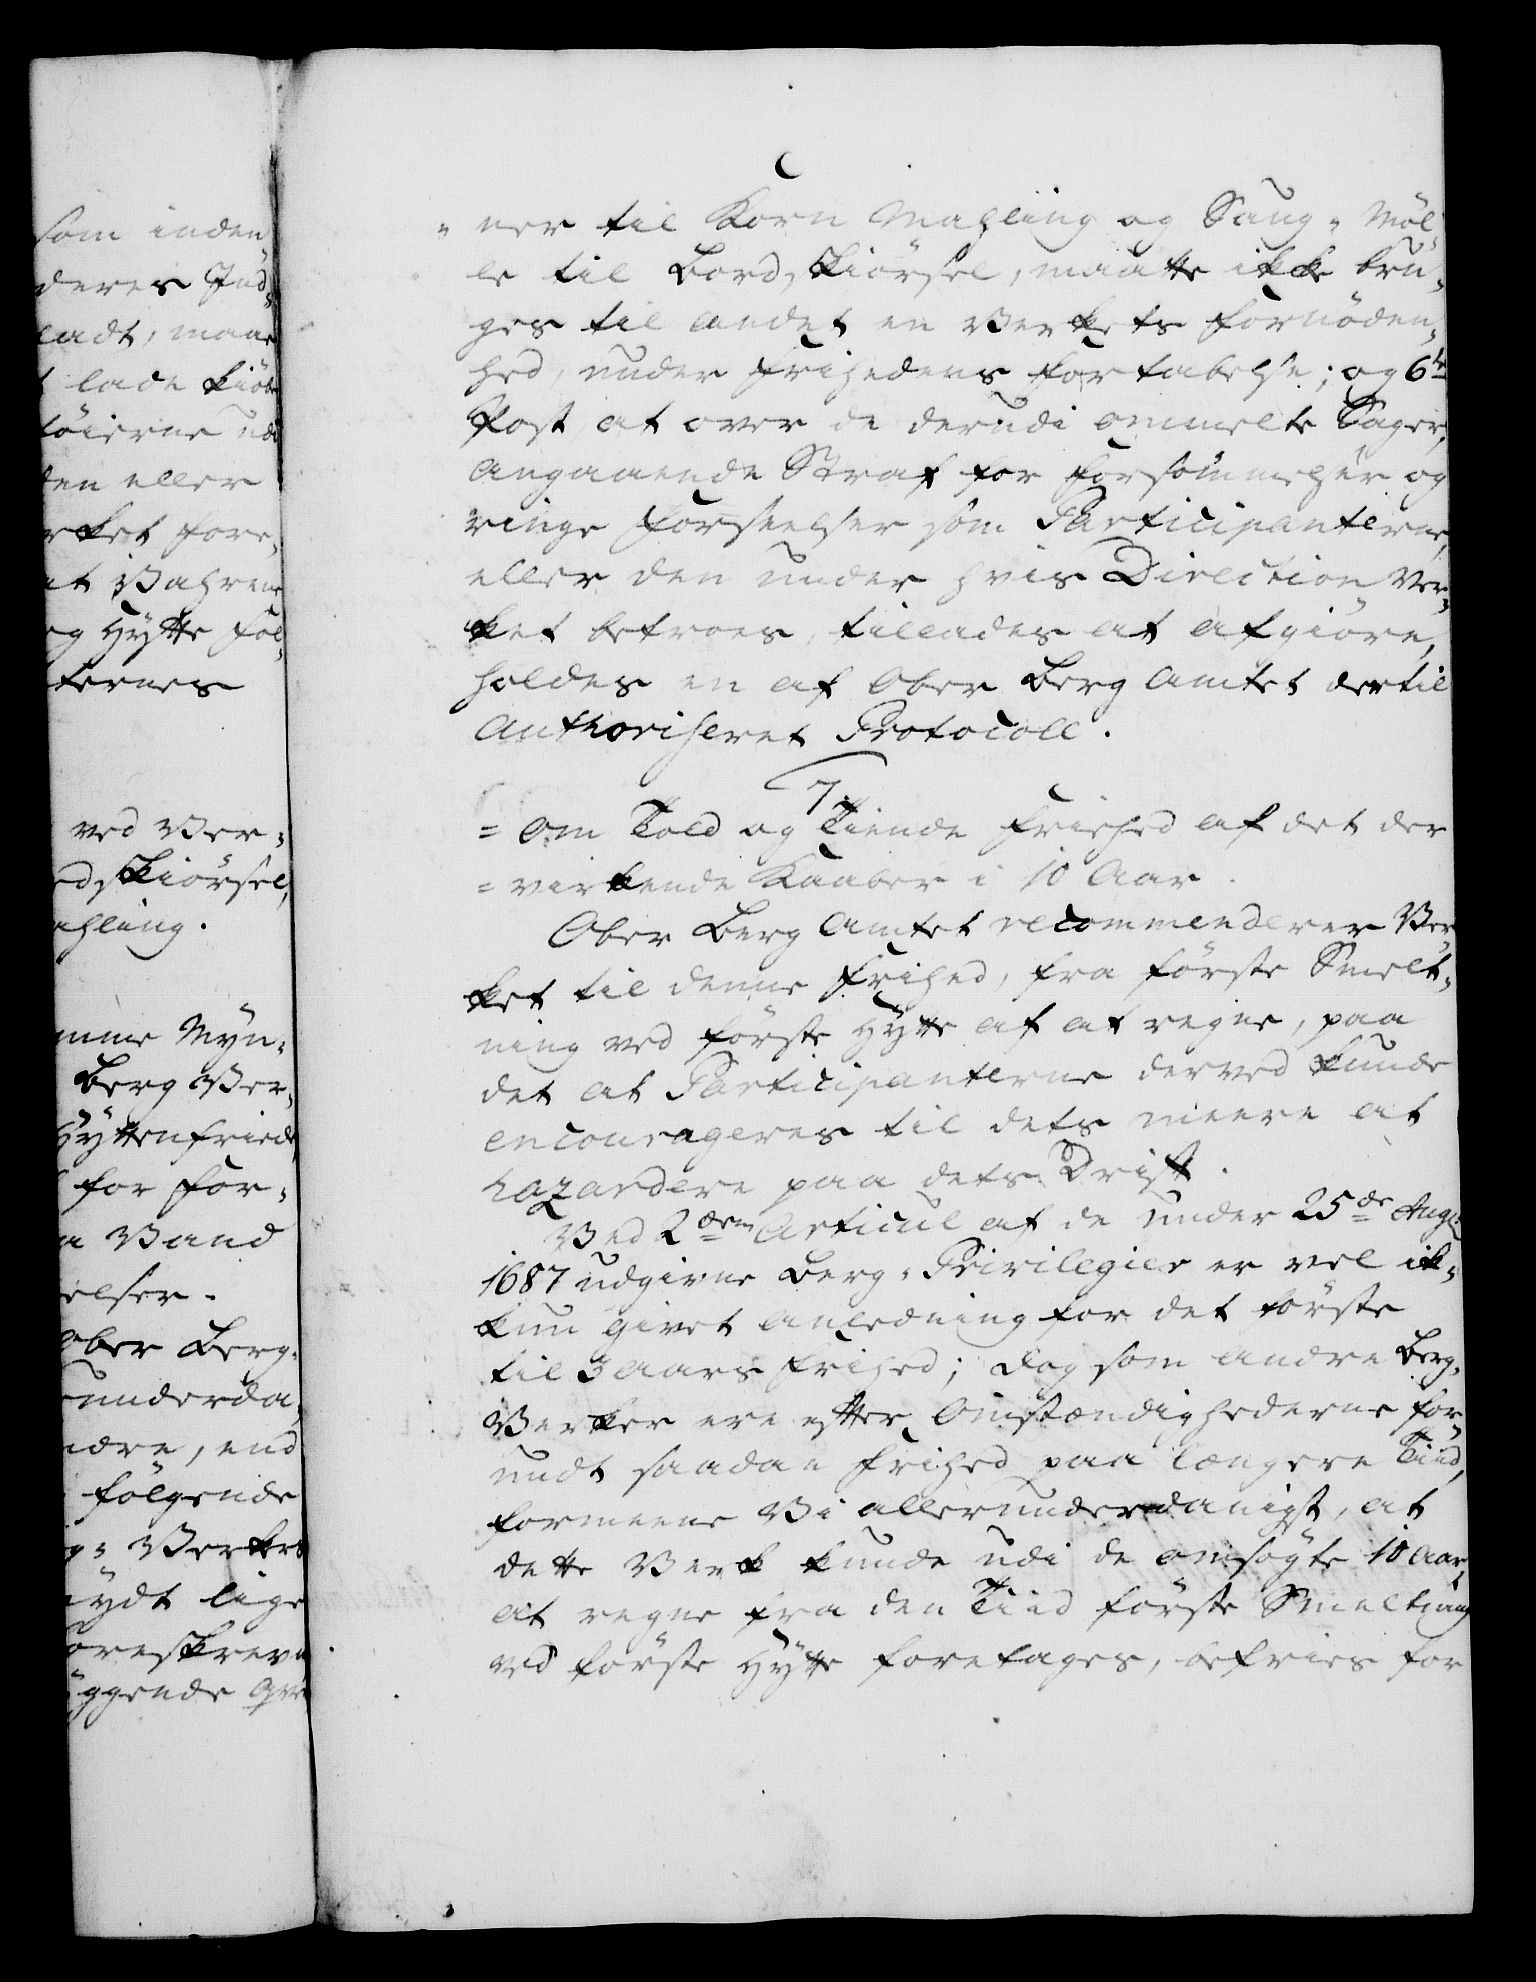 som inden
deres Ind„
ladt, maae
lade kiöb
töierne udi
den eller
rket fore„
at Vahrene
og Hytte fol„
ternes
ved Ver„
ed skiörsel,
ahling.
mme Myn„
Berg Ver„
Hyttenfriede
for for„
a Vand
elser.
Ober Berg„
underda„
ndre, end
følgende
g„ Verkes
nydt lige
foreskrevn
yggende
„ner til Korn Mahling og Saug„ Möl„
le til Bord, skiörsel, maatte ikke bru„
ges til andet en Verkets fornöden„
hed, under Frihedens fortabelse; og 6te
Post, at over de derudi ommelte Sager,
angaaende Straf for forsömmelser og
ringe forseelser som Participanterne,
eller den under hvis Direction Ver„
ket betroes, tillades at afgiöre,
holdes en af Ober Berg Amtet dertil
authoriseret Protocoll.
7.
= Om Told og Tiende Friehed af det der
= virkende Kaaber i 10 Aar.
Ober Berg Amtet recommenderer Ver„
ket til denne Frihed, fra förste Smelt„
ning ved förste Hytte af at regne, paa
det at Participanterne derved kunde
encourageres til dets meere at
hazardere paa dets Drift.
Ved 2den Articul af de under 25de Aug:
1687 udgivne Berg„ Privilegier er vel ik„
kun givet anledning for det förste
til 3 Aars Frihed; dog som andre Berg„
Verker ere efter Omstændighederne for„
undt saadan Frihed paa længere Tiid,
formeene Vi allerunderdanigst, at
dette Verk kunde udi de omsögte 10 Aar,
at regne fra den Tiid förste Smeltning
ved förste Hytte foretages, befries for